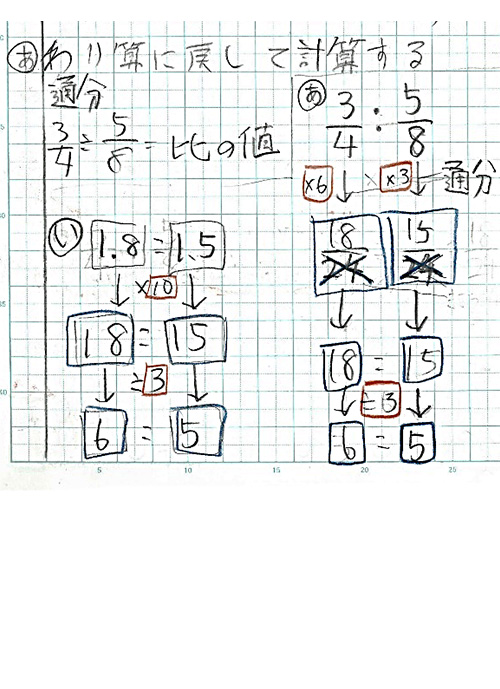 あ わり算に戻して計算する
通分
3/4 ÷ 5/8 = 比の値
い
1.8 = 1.5
↓ ×10 ↓
18 = 15
↓ ÷3 ↓
6 = 5
あ 3/4 : 5/8
×6 ↓ ×3 ↓ 通分
18/24 15/24
↓ ↓
18 = 15
↓ ÷3 ↓
6 = 5
5 10 15 20 25